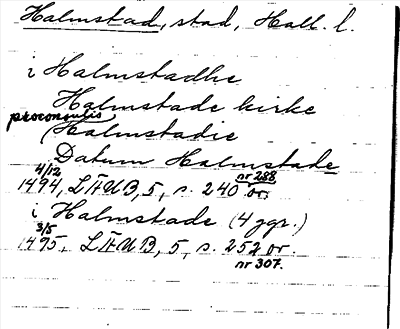 Halmstad, stad, Hall. l.
i Halmstadhe
Halmstade kirke
proconsulis
Halmstadie
Datum Halmstade
4/12 nr 288
1494, LÄUB, 5, s. 240 or.
i Halmstade (4 ggr.)
3/5
1495, LÄUB, 5, s. 252 or
nr 307.